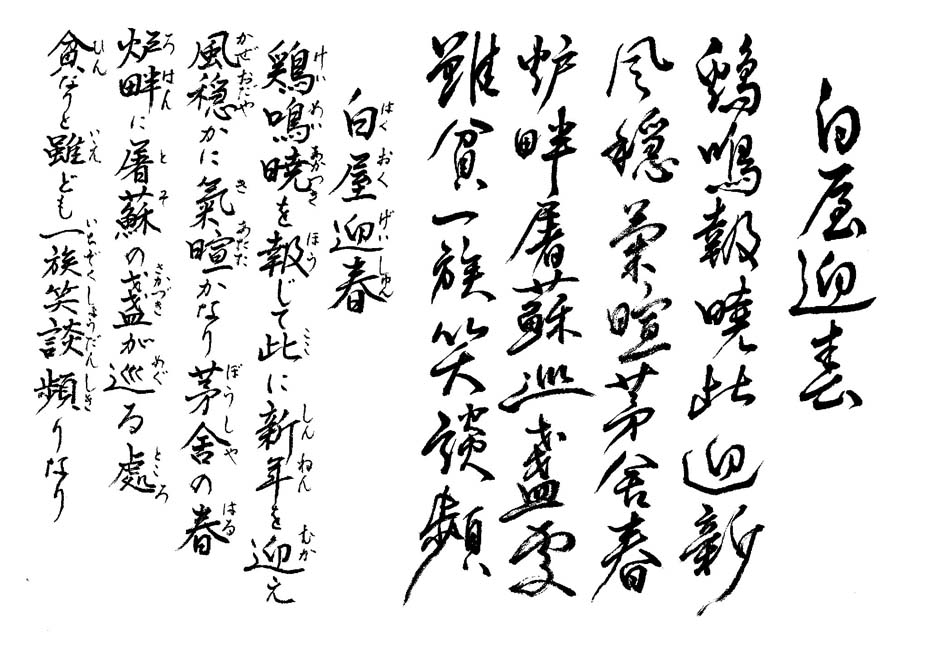 白屋迎春
鶏鳴報暁此迎新
風穏氣暄茅舎春
炉畔屠蘇巡盞處
雖貧一族笑談頻
はくおくげいしゅん
白屋迎春
けいめいあかつき ほう ここ しんねん むか
鶏鳴暁を報じて此に新年を迎え
かぜおだや き あたた ぼうしゃ はる
風穏かに氣暄かなり茅舎の春
ろはん とそ さかづき めぐ ところ
炉畔に屠蘇の盞が巡る處
ひん いえ いちぞくしょうだんしき
貧なりと雖ども一族笑談頻りなり